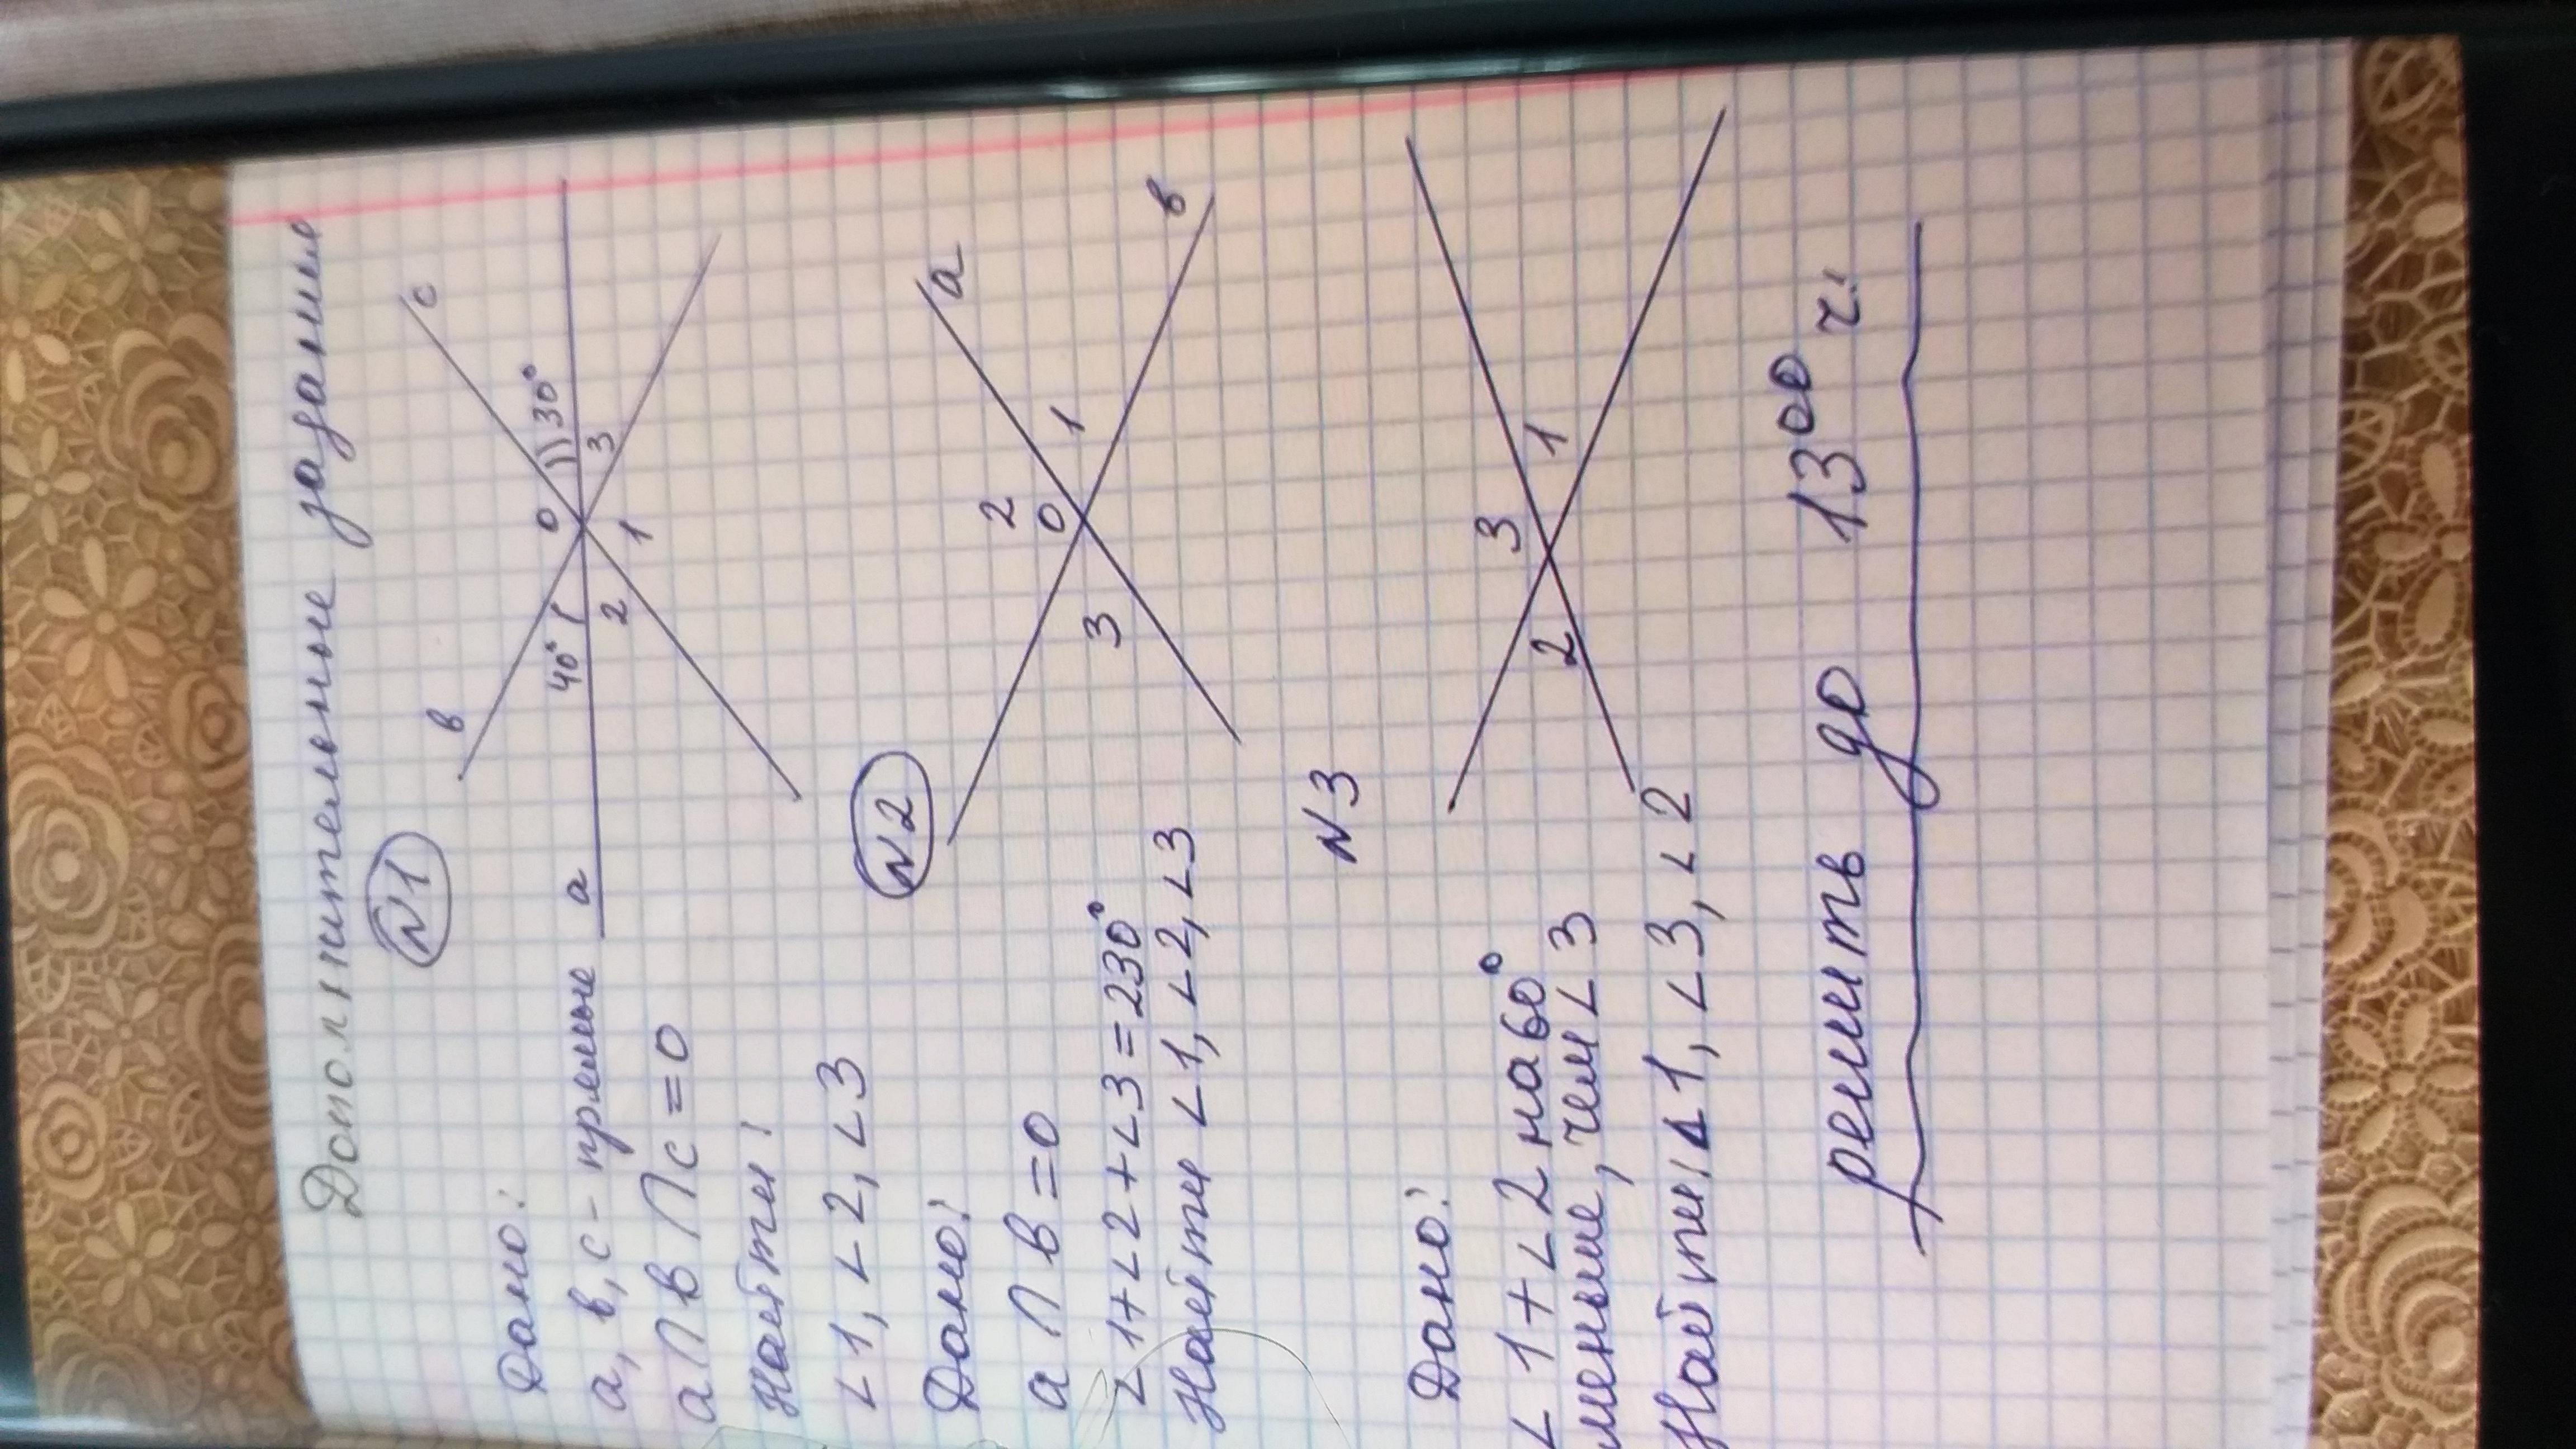 Дополнительные задания
N1
Дано:
а, в, с - прямые
а ∩ в ∩ с = 0
Найти:
∠1, ∠2, ∠3
в
с
0
40°
30°
3
2
1
а
N2
Дано:
а ∩ в = 0
∠1+∠2+∠3=230°
Найти ∠1, ∠2, ∠3
а
2
0
1
3
в
N3
Дано:
∠1+∠2 на 60°
меньше, чем ∠3
Найти: ∠1, ∠3, ∠2
3
1
2
решить до 13⁰⁰ ч.